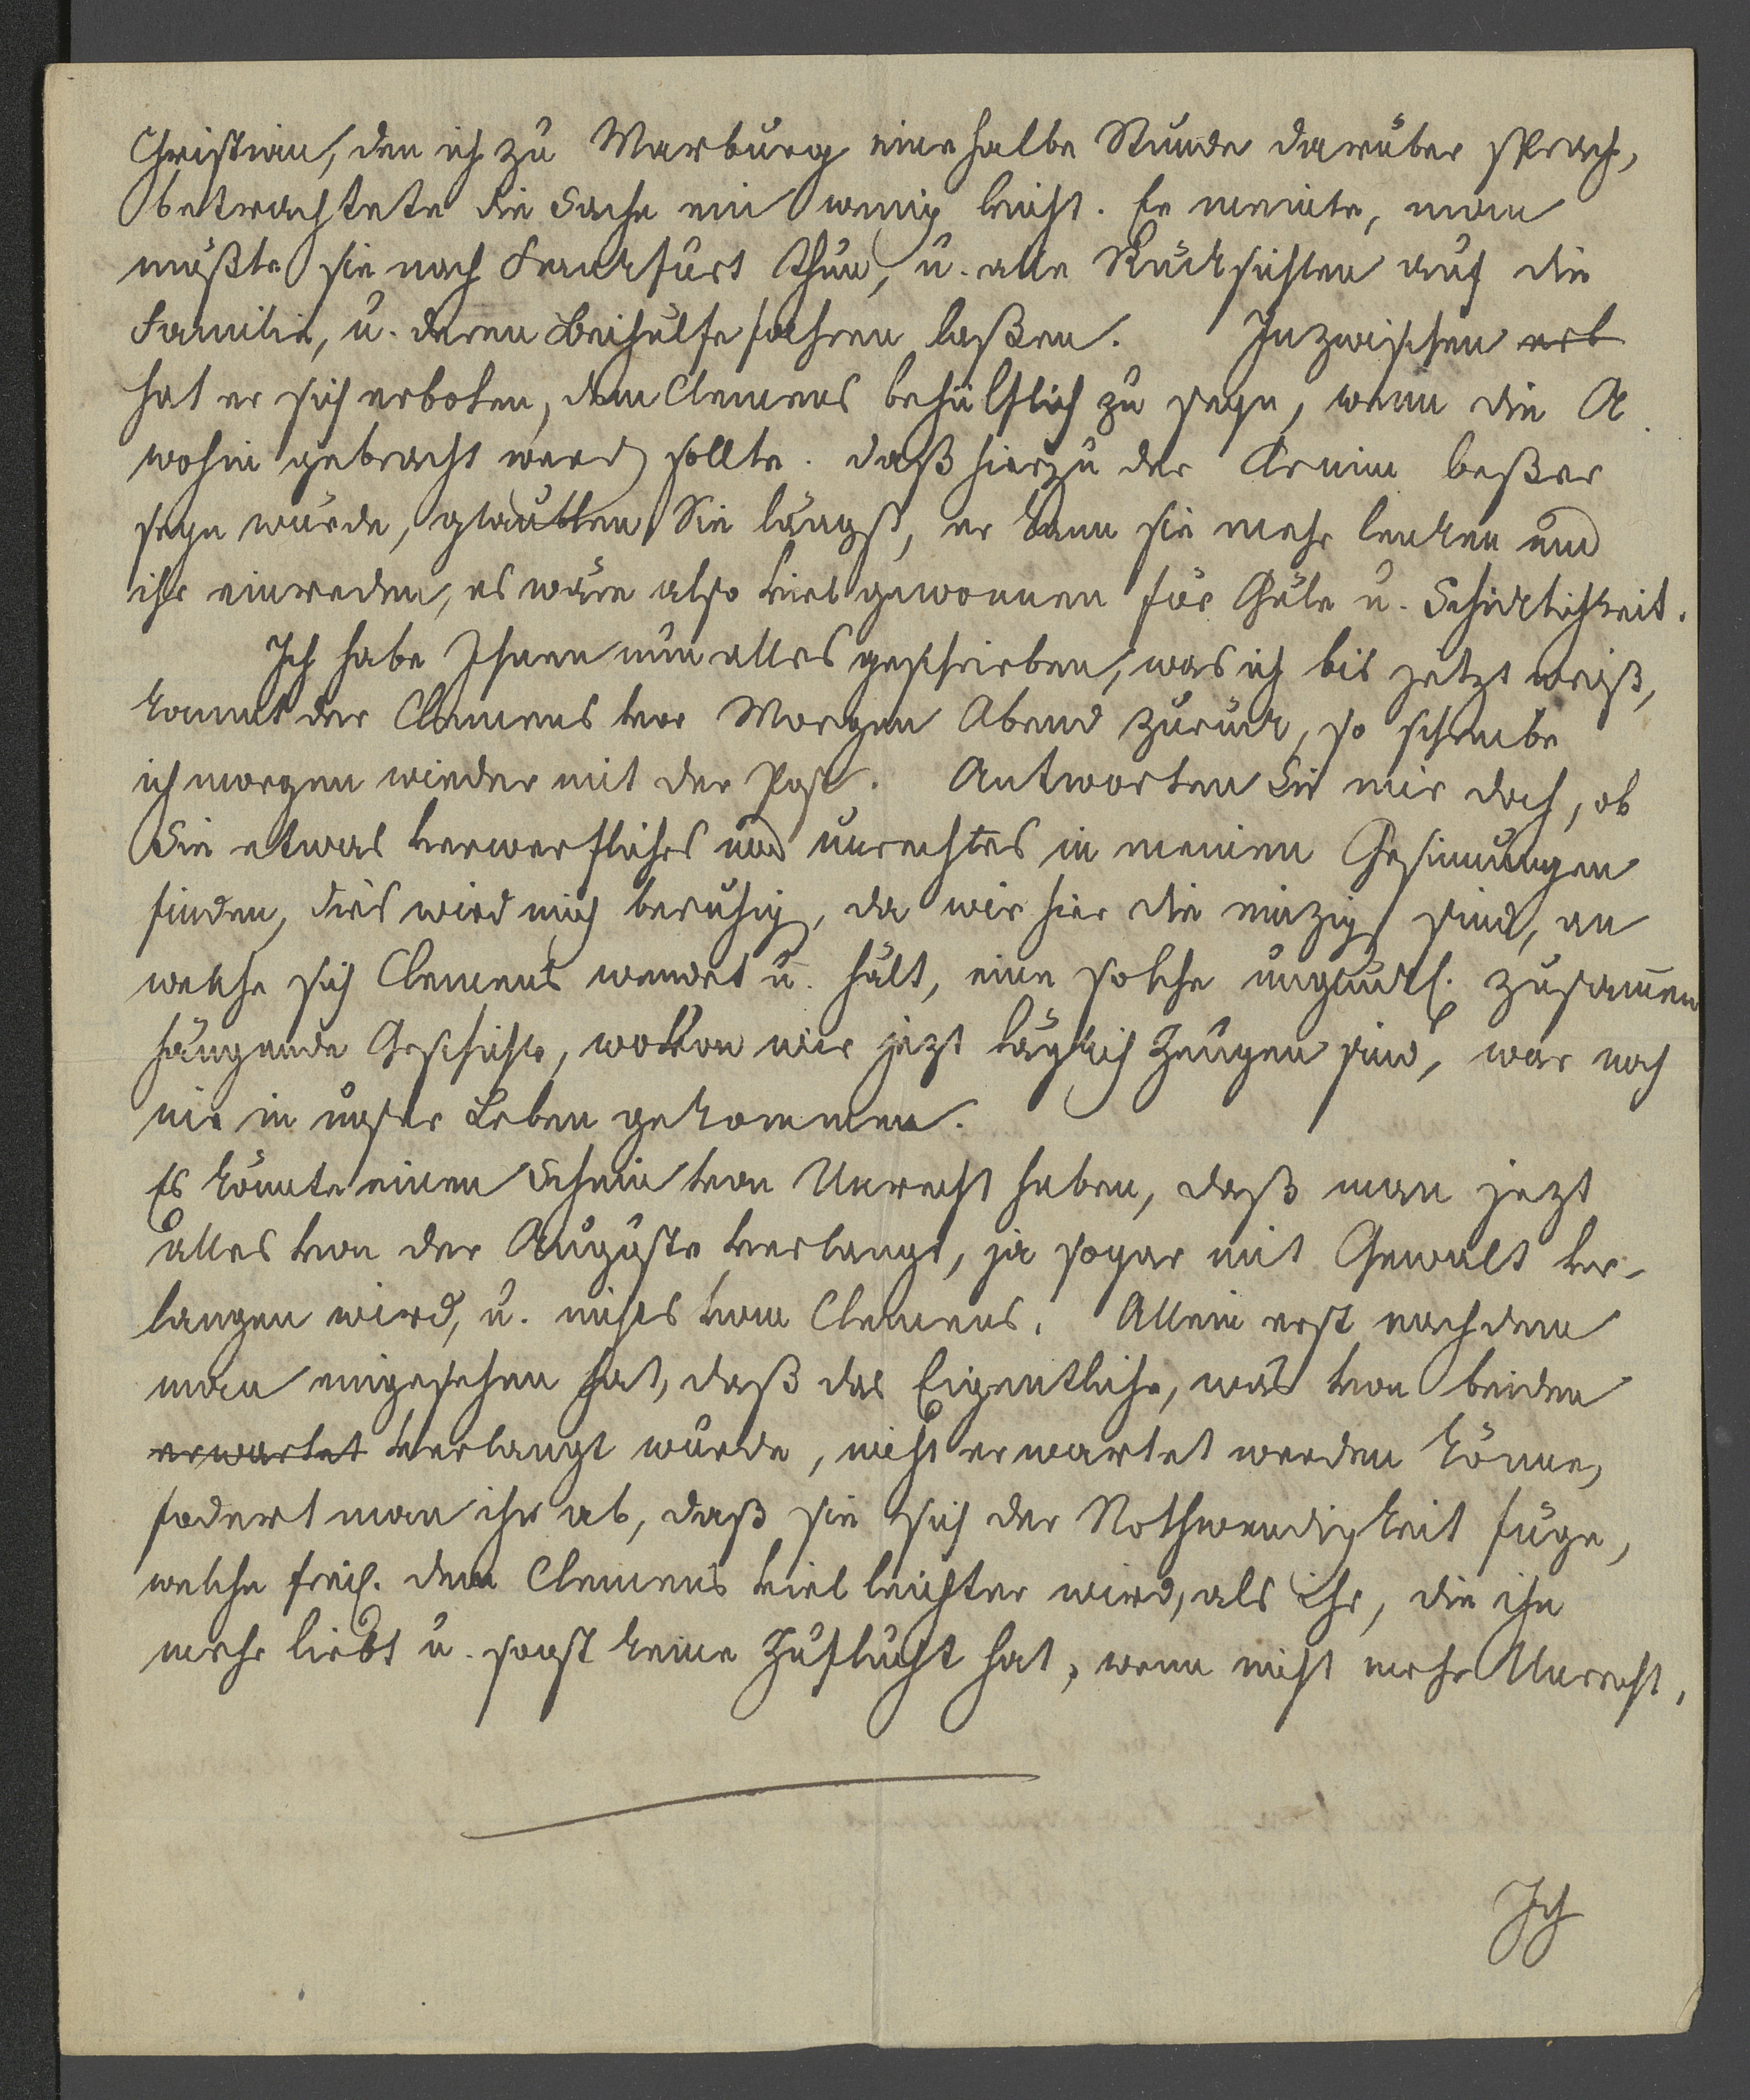 Christian, den ich zu Marburg eine halbe Stunde darüber sprach,
betrachtete die Sache ein wenig leicht. Er meinte, man
müßte sie nach Frankfurt thun, u. alle Rücksichten auf die
Familie, u. deren Beihülfe fahren laßen. Inzwischen erb
hat er sich erboten, dem Clemens behülflich zu seyn, wenn die A.
wohin gebracht werd sollte. daß hierzu der Arnim beßer
seyn würde, glaubten Sie längst, er kann sie mehr lenken und
ihr einreden, es wäre also viel gewonnen für Güte u. Schicklichkeit.
Ich habe Ihnen nun alles geschrieben, was ich bis jetzt weiß,
kommt der Clemens vor Morgen Abend zurück, so schreibe
ich morgen wieder mit der Post. Antworten Sie mir doch, ob
Sie etwas verwerfliches und unrechtes in meinen Gesinnungen
finden, dies wird mich beruhig, da wir hier die einzig sind, an
welche sich Clemens wendet u. hält, eine solche unglückl. zusamen
hängende Geschichte, wovon wir jezt täglich Zeugen sind, war noch
nie in unser Leben gekommen.
Es könnte einen Schein von Unrecht haben, daß man jezt
alles von der Auguste verlangt, ja sogar mit Gewalt ver-
langen wird, u. nichts vom Clemens. Allein erst nachdem
man eingesehen hat, daß das Eigentliche, was von beiden
erwartet verlangt würde, nicht erwartet werden könne,
fodert man ihr ab, daß sie sich der Nothwendigkeit füge,
welche freil. dem Clemens viel leichter wird, als ihr, die ihn
mehr liebt u. sonst keine Zuflucht hat, wenn nicht mehr Unrecht,
Ich